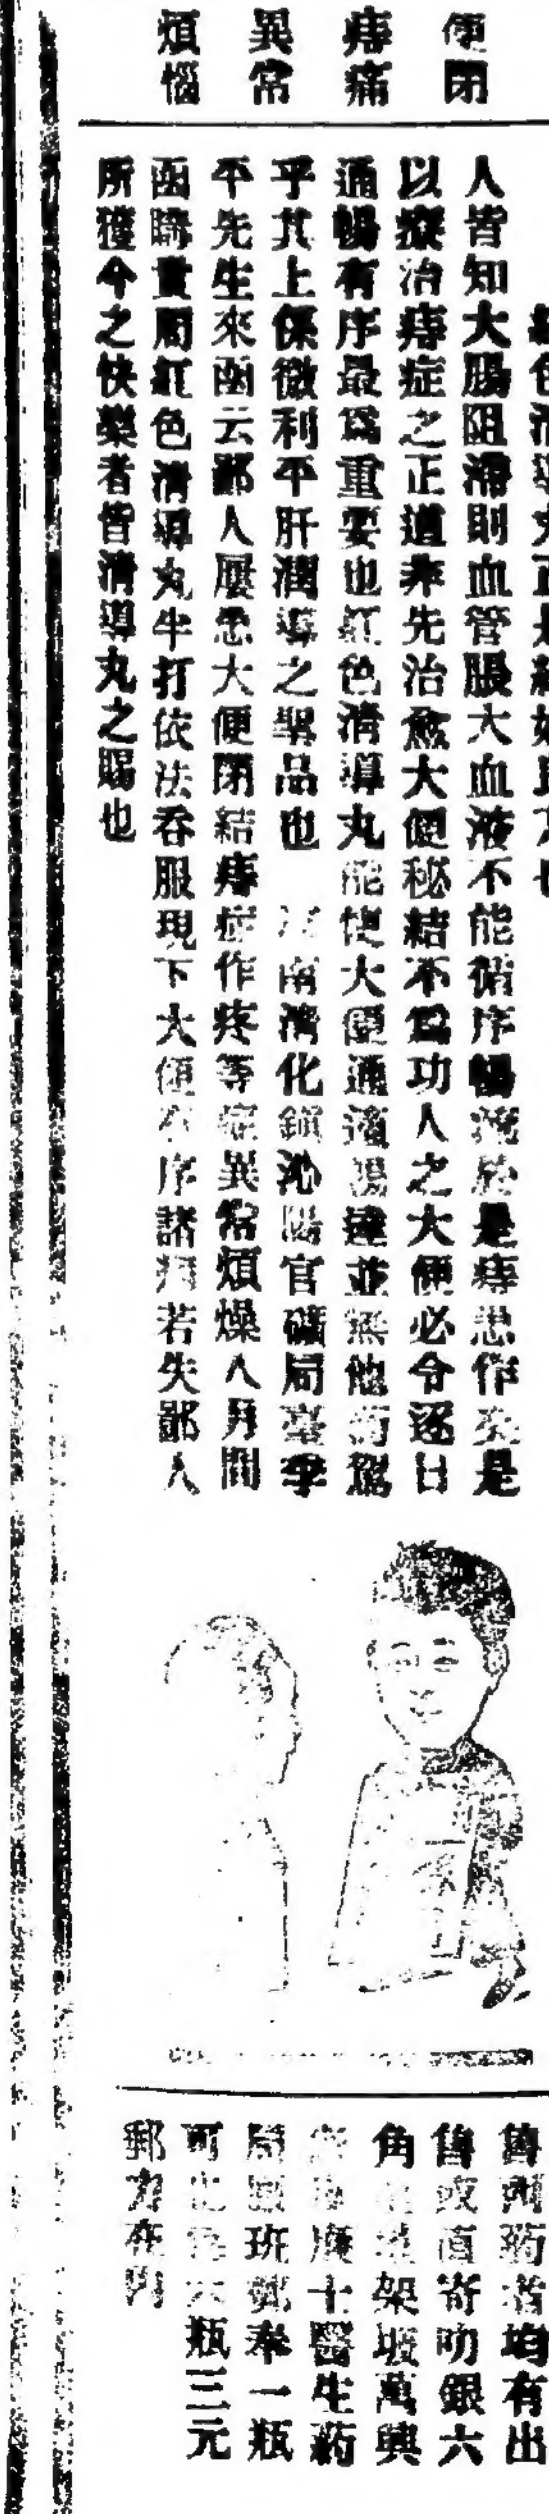 便閉
痔痛
異常
煩惱
紅色清導丸正是
人皆知大腸阻滯則血管脹大血液不能循序暢流於是痔患作矣是
以療治痔症之正道非先治愈大便秘結不爲功人之大便必令逐日
通暢有序最爲重要也紅色清導丸能使大便通適暢達並無他術駕
乎其上係微利平肝潤導之聖品也 河南清化鎮沁陽官礦局 季
平先生來函云鄙人屢患大便閉結痔症作疼等症異常煩燥八月間
函購貴局紅色清導丸半打依法吞服現下大便有序諸病若失鄙人
所獲今之快樂者皆清導丸之賜也
售西药者均有出
售或直寄叻銀六
角 架坡萬興
廉士醫生葯
局 班郵奉一瓶
可也 六瓶三元
郵力在內